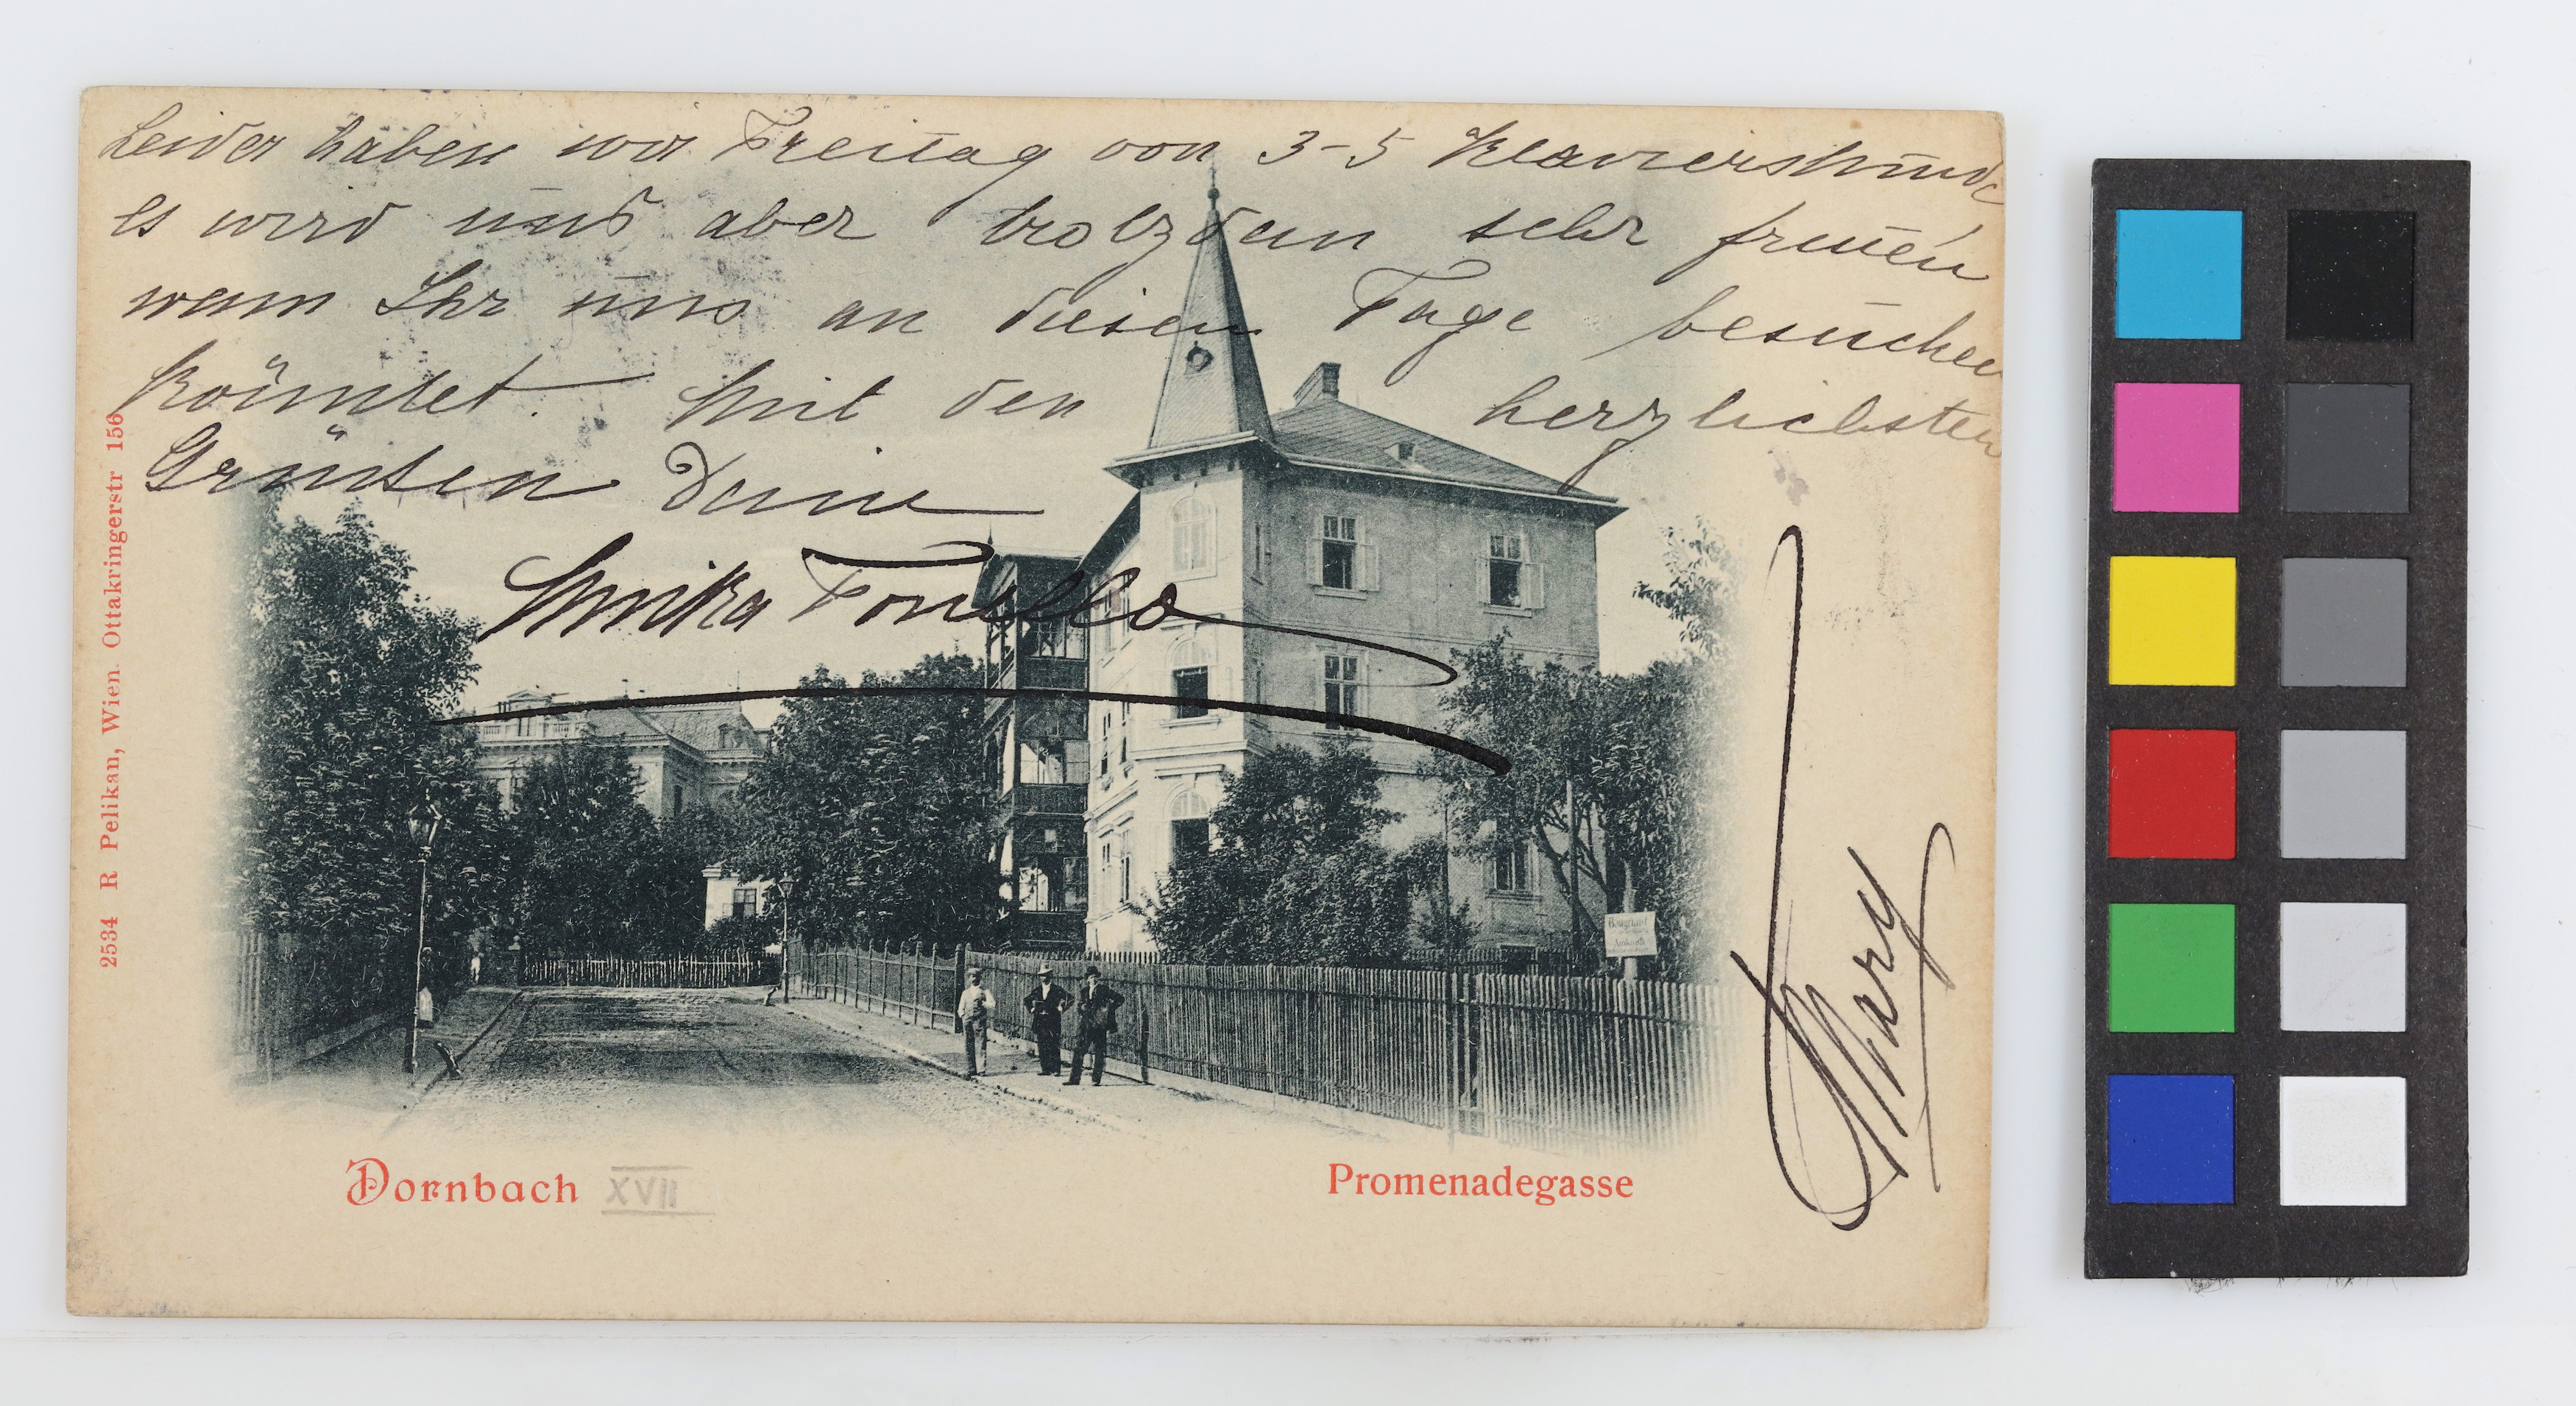 Leider haben wir Freitag von 3-5 Klavierstunde
es wird uns aber trotzdem sehr freuen
wenn Ihr uns an diesem Tage besuchen
könntet. Mit den herzlichsten
Grüssen Deine
Mary
Dornbach XVII
Promenadegasse
2534 R Pelikan, Wien. Ottakringerstr 156